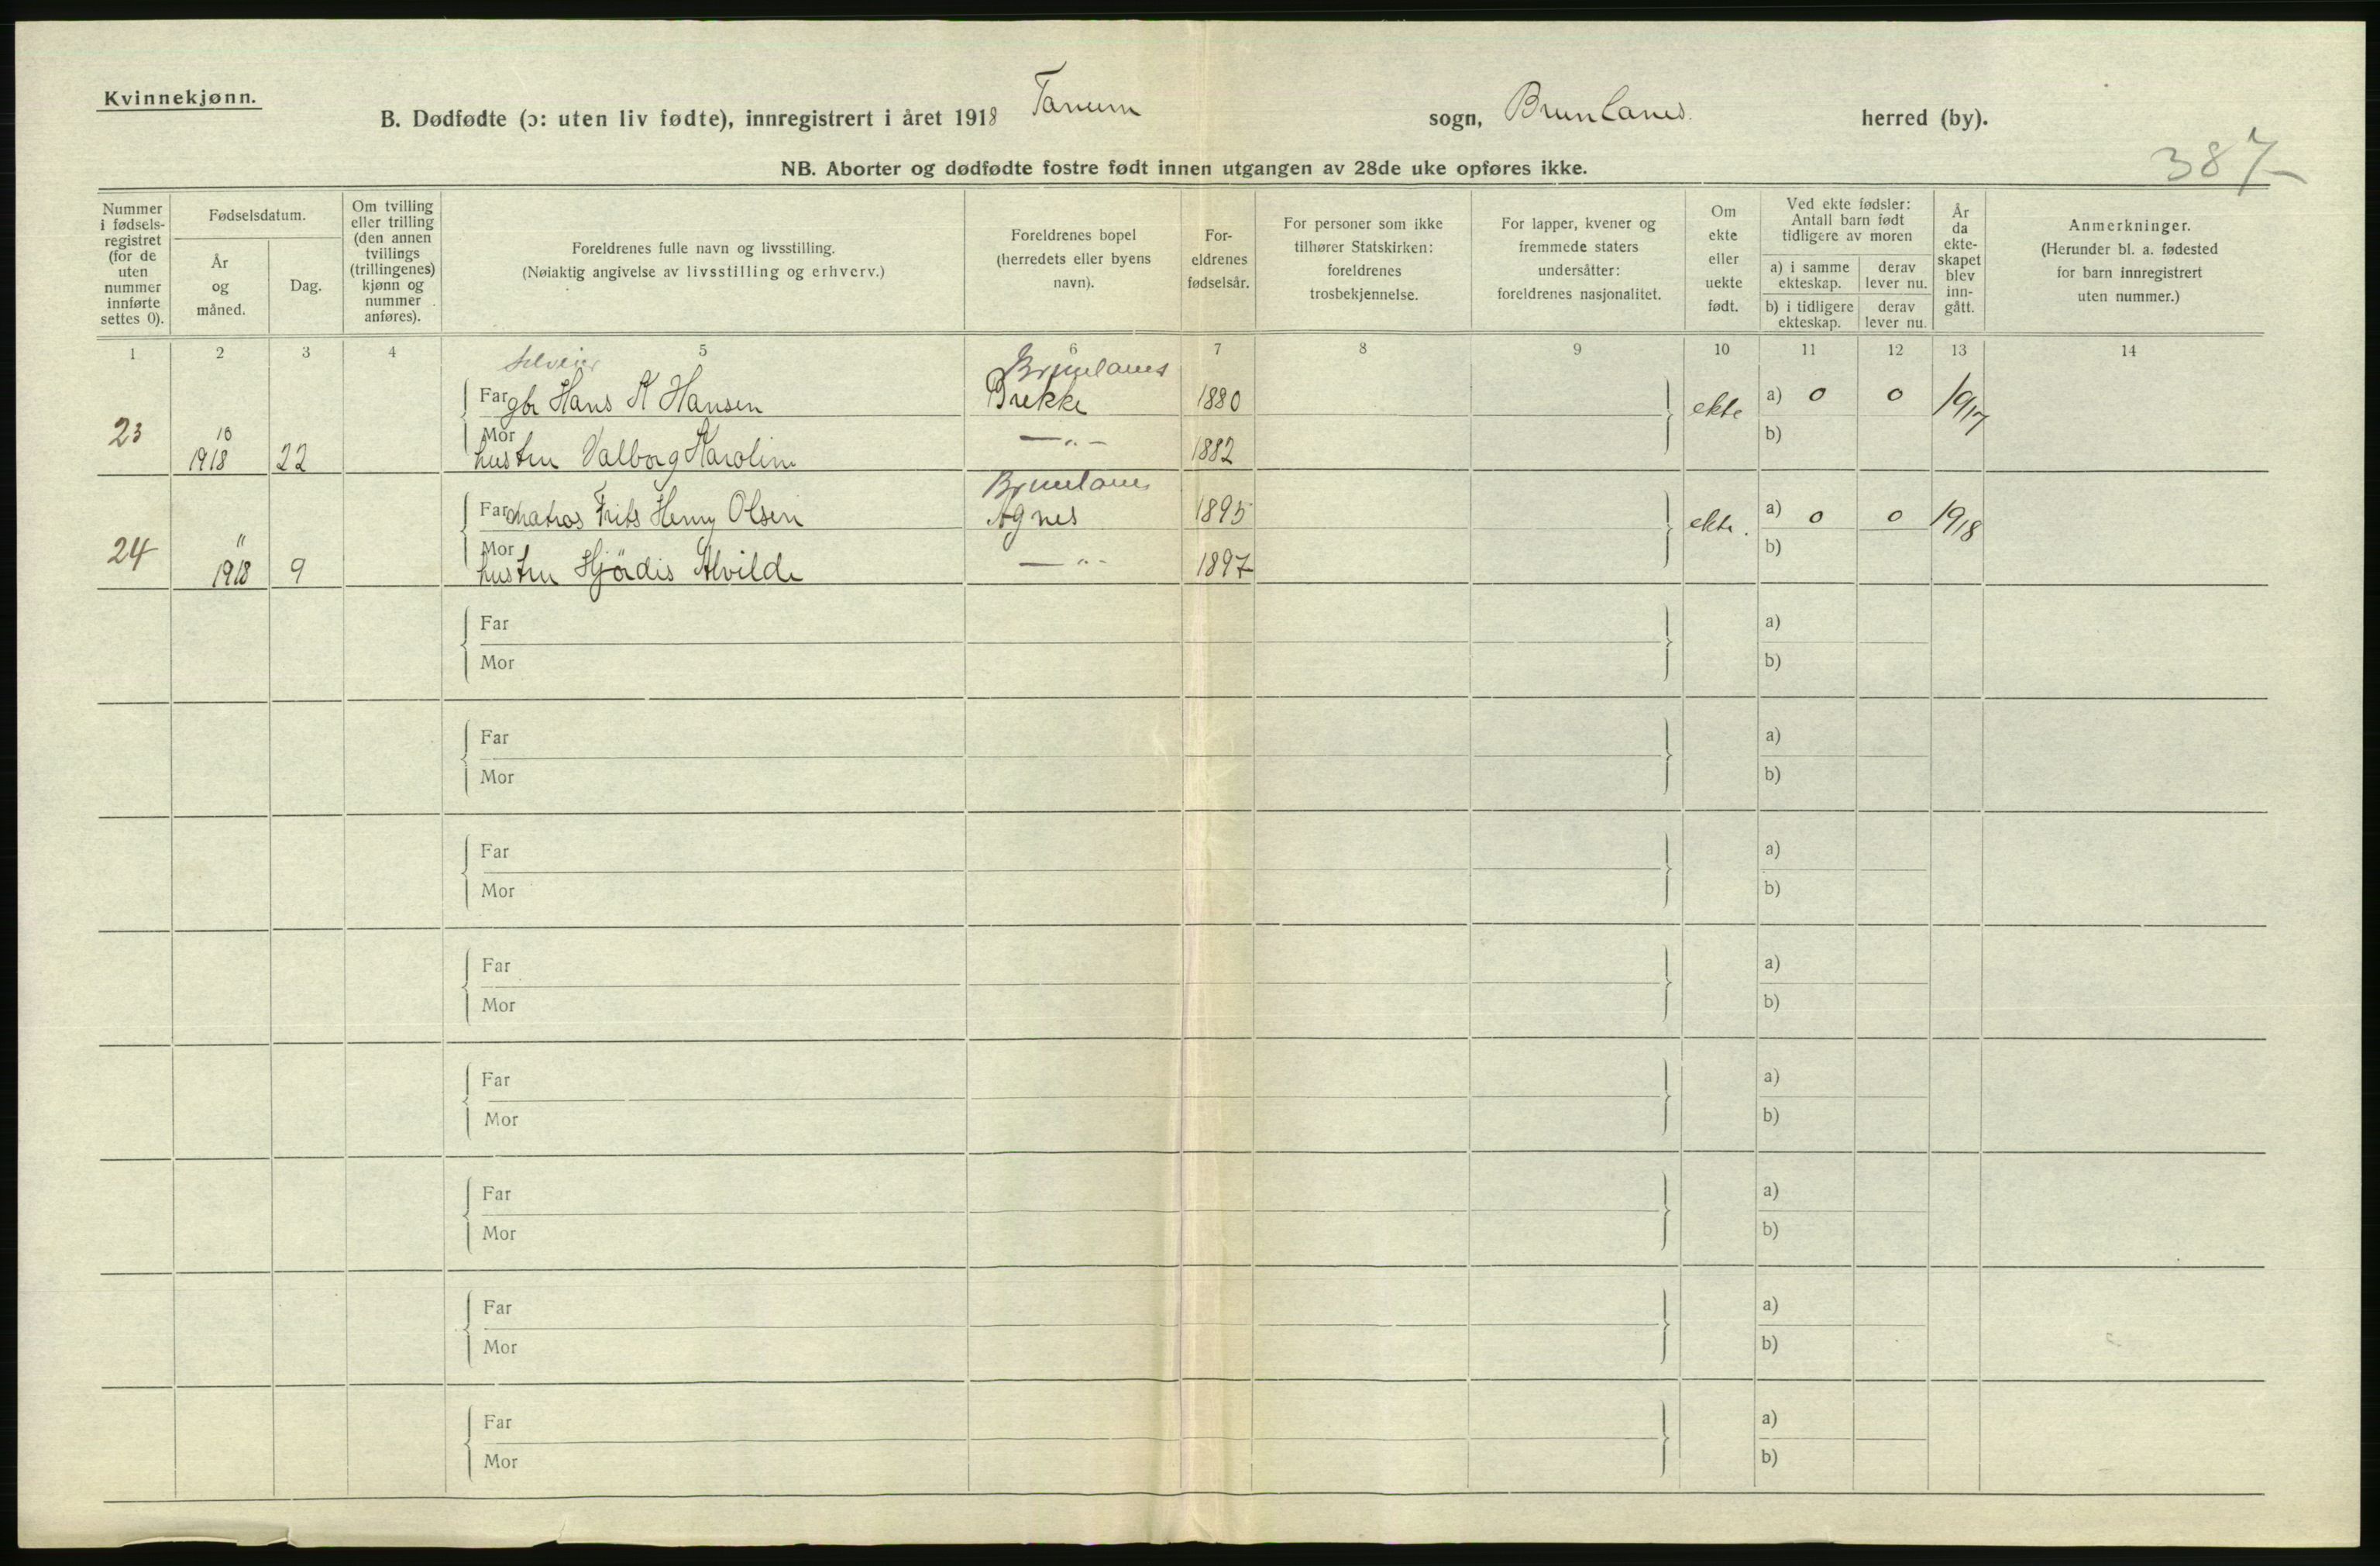 Kvinnekjønn.
B. Dødfødte (ɔ: uten liv fødte), innregistrert i året 1918 Tanum sogn, Brunlanes. herred (by).
NB. Aborter og dødfødte fostre født innen utgangen av 28de uke opføres ikke.
387
Nummer i fødsels-registret (for de uten nummer innførte settes 0).
Fødselsdatum.
År og måned.
Dag.
Om tvilling eller trilling (den annen tvillings (trillingenes) kjønn og nummer anføres).
Foreldrenes fulle navn og livsstilling.
(Nøiaktig angivelse av livsstilling og erhverv.)
Foreldrenes bopel (herredets eller byens navn).
For-eldrenes fødselsår.
For personer som ikke tilhører Statskirken: foreldrenes trosbekjennelse.
For lapper, kvener og fremmede staters undersåtter: foreldrenes nasjonalitet.
Om ekte eller uekte født.
Ved ekte fødsler: Antall barn født tidligere av moren
a) i samme ekteskap.
derav lever nu.
b) i tidligere ekteskap.
derav lever nu.
År da ekte-skapet blev inn-gått.
Anmerkninger.
(Herunder bl. a. fødested for barn innregistrert uten nummer.)
1 2 3 4 5 6 7 8 9 10 11 12 13 14
selveier Brunlanes
Far gbr Hans K Hansen Brekke 1880 ekte a) 0 0 1917
23 10 1918 22
Mor hustru Valborg Karoline —"— 1882 b)
Brunlanes
Far Matros Frits Henry Olsen Agnes 1895 ekte. a) 0 0 1918
24 11 1918 9
Mor hustru Hjördis Alvilde —"— 1897 b)
Far a)
Mor b)
Far a)
Mor b)
Far a)
Mor b)
Far a)
Mor b)
Far a)
Mor b)
Far a)
Mor b)
Far a)
Mor b)
Far a)
Mor b)